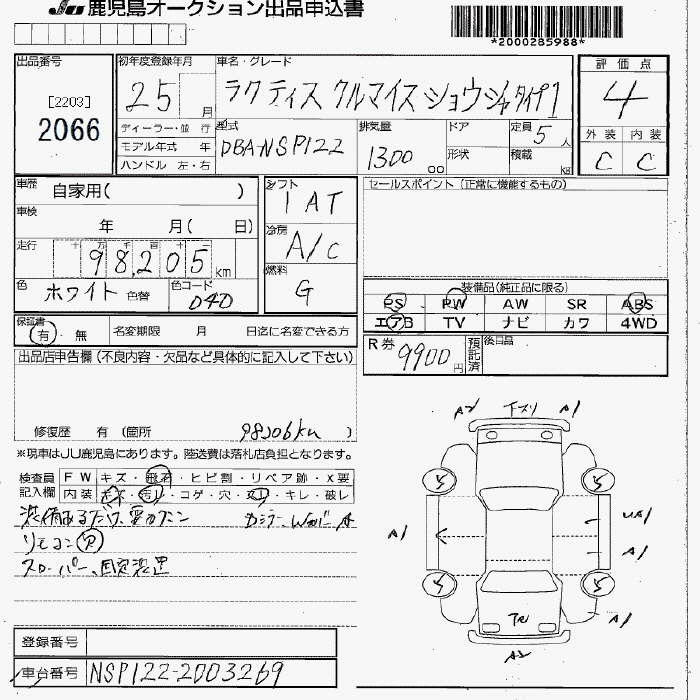 JU 鹿児島オークション出品申込書
*2000285988*
出品番号
[2203]
2066
初年度登録年月
25 月
ディーラー・並 行
モデル年式 年
ハンドル 左・右
車名・グレード
ラクティス クルマイスショウシャタイプ1
型式
DBA-NSP122
排気量
1300 cc
ドア
形状
定員 5 人
積載 kg
評価点
4
外装 内装
C C
車歴 自家用( )
車検
年 月( 日)
走行 十 万 千 百 十 一
98,205 km
色 ホワイト 色替
色コード
040
シフト
1AT
冷房
A/C
燃料
G
セールスポイント (正常に機能するもの)
装備品(純正品に限る)
PS PW AW SR ABS
エアB TV ナビ カワ 4WD
保証書
有 無
名変期限 月 日迄に名変できる方
R券 9900円
預託済
後日品
出品店申告欄 (不良内容・欠品など具体的に記入して下さい)
修復歴 有 (箇所 98206km )
※現車はJU鹿児島にあります。陸送費は落札店負担となります。
検査員記入欄
FW キズ・飛石・ヒビ割・リペア跡・X要
内装 キズ・汚レ・コゲ・穴・・キレ・破レ
リモコン ア
スローパー、固定装置
A2 下スリ A1
A1
UA1
A1
A1
A2
登録番号
車台番号 NSP122-2003269